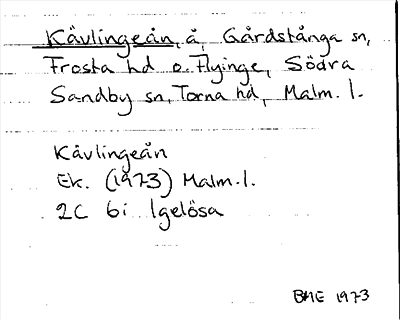 Kävlingeån, å, Gårdstånga sn,
Frosta hd o. Flyinge, Södra
Sandby sn, Torna hd, Malm. l.
Kävlingeån
Ek. (1973) Malm. l.
2C 6i Igelösa
BHE 1973